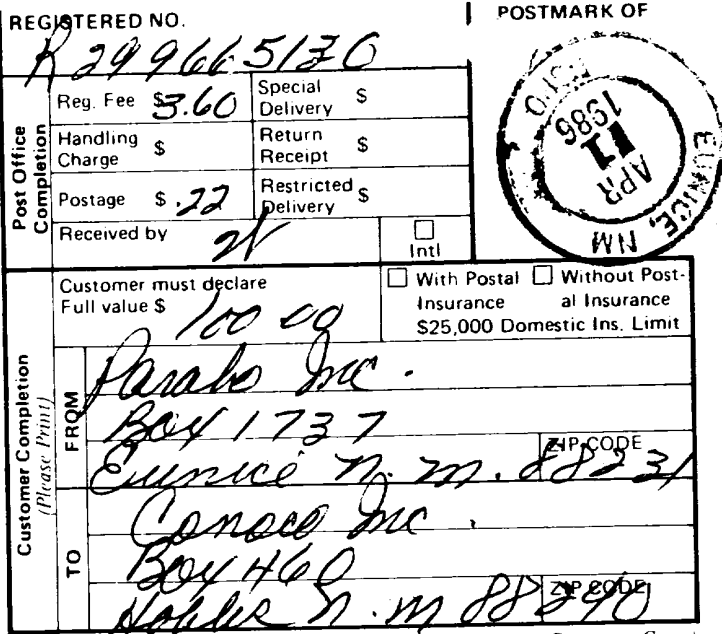 REGISTERED NO.
R299665130
POSTMARK OF
EUNICE, NM
APR
11
1986
Post Office Completion
Reg. Fee $ 3.60
Special Delivery $
Handling Charge $
Return Receipt $
Postage $ .22
Restricted Delivery $
Received by
Intl
Customer Completion
(Please Print)
Customer must declare
Full value $ 100 00
With Postal Insurance
Without Postal Insurance
$25,000 Domestic Ins. Limit
FROM
Parabo Inc.
Box 1737
ZIP CODE
Eunice N. M. 88231
TO
Conoco Inc.
Box 460
ZIP CODE
Hobbs N. M 88240